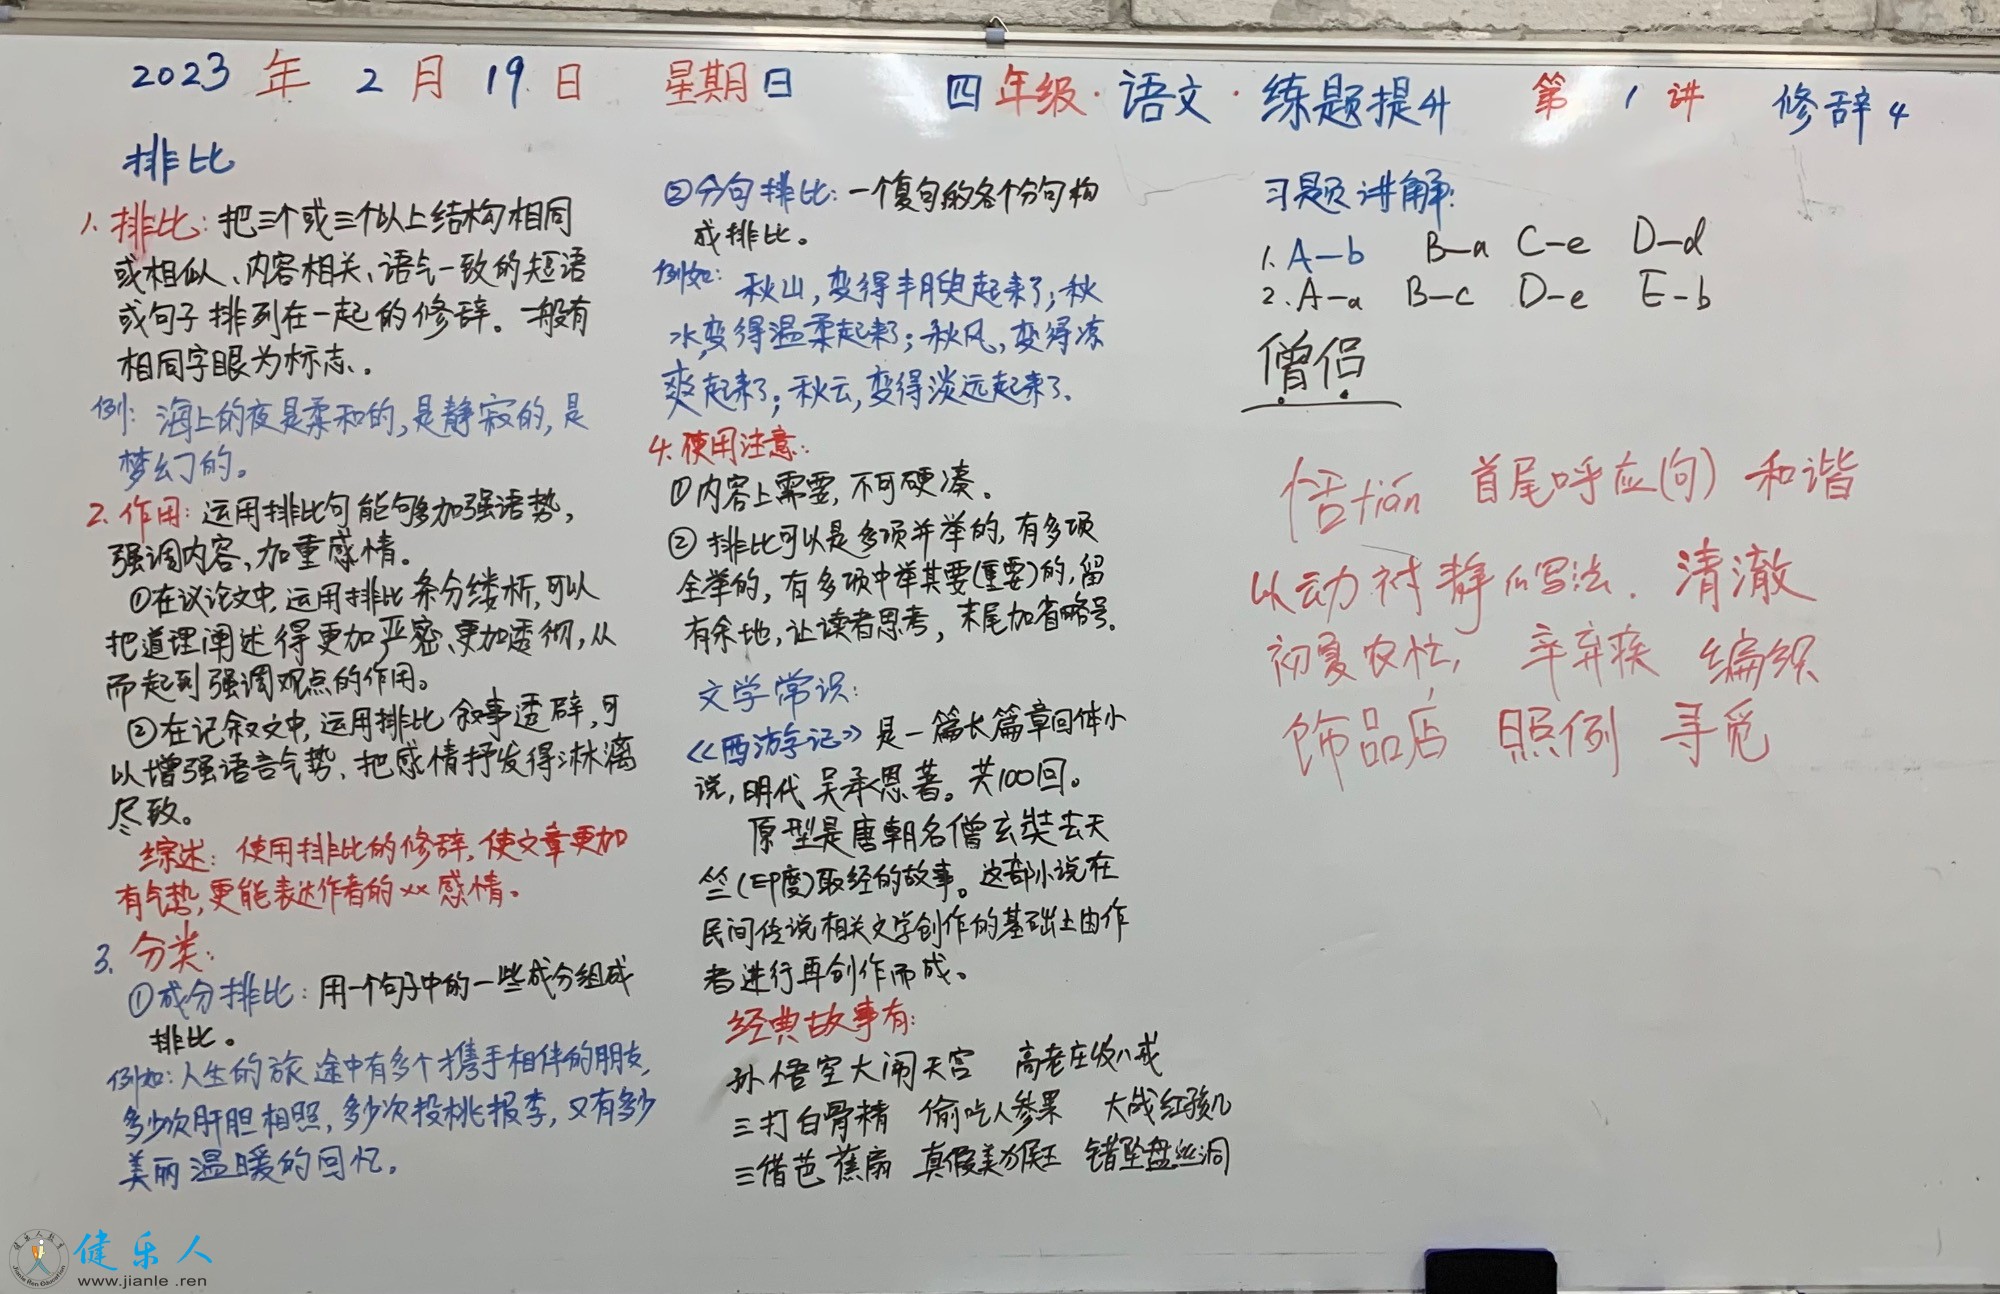 2023 年 2 月 19 日 星期日 四年级·语文·练题提升 第 1 讲 修辞4
排比
1. 排比：把三个或三个以上结构相同
或相似、内容相关、语气一致的短语
或句子排列在一起的修辞。一般有
相同字眼为标志。
例：海上的夜是柔和的，是静寂的，是
梦幻的。
2. 作用：运用排比句能够加强语势，
强调内容，加重感情。
①在议论文中，运用排比条分缕析，可以
把道理阐述得更加严密、更加透彻，从
而起到强调观点的作用。
②在记叙文中，运用排比叙事透辟，可
以增强语言气势，把感情抒发得淋漓
尽致。
综述：使用排比的修辞，使文章更加
有气势，更能表达作者的××感情。
3. 分类：
①成分排比：用一个句子中的一些成分组成
排比。
例如：人生的旅途中有多个携手相伴的朋友，
多少次肝胆相照，多少次投桃报李，又有多少
美丽温暖的回忆。
②分句排比：一个复句的各个分句构
成排比。
例如：秋山，变得丰腴起来了；秋
水，变得温柔起来了；秋风，变得凉
爽起来了；秋云，变得淡远起来了.
4. 使用注意：
①内容上需要，不可硬凑。
②排比可以是多项并举的，有多项
全举的，有多项中举其要(重要)的，留
有余地，让读者思考，末尾加省略号.
文学常识：
《西游记》是一篇长篇章回体小
说，明代吴承恩著。共100回。
原型是唐朝名僧玄奘去天
竺(印度)取经的故事。这部小说在
民间传说相关文学创作的基础上由作
者进行再创作而成。
经典故事有：
孙悟空大闹天宫 高老庄收八戒
三打白骨精 偷吃人参果 大战红孩儿
三借芭蕉扇 真假美猴王 错坠盘丝洞
习题讲解：
1. A—b B—a C—e D—d
2. A—a B—c D—e E—b
僧侣
恬tián 首尾呼应(句) 和谐
以动衬静的写法. 清澈
初夏农忙， 辛弃疾 编织
饰品店 照例 寻觅
健乐人
www.jianle.ren